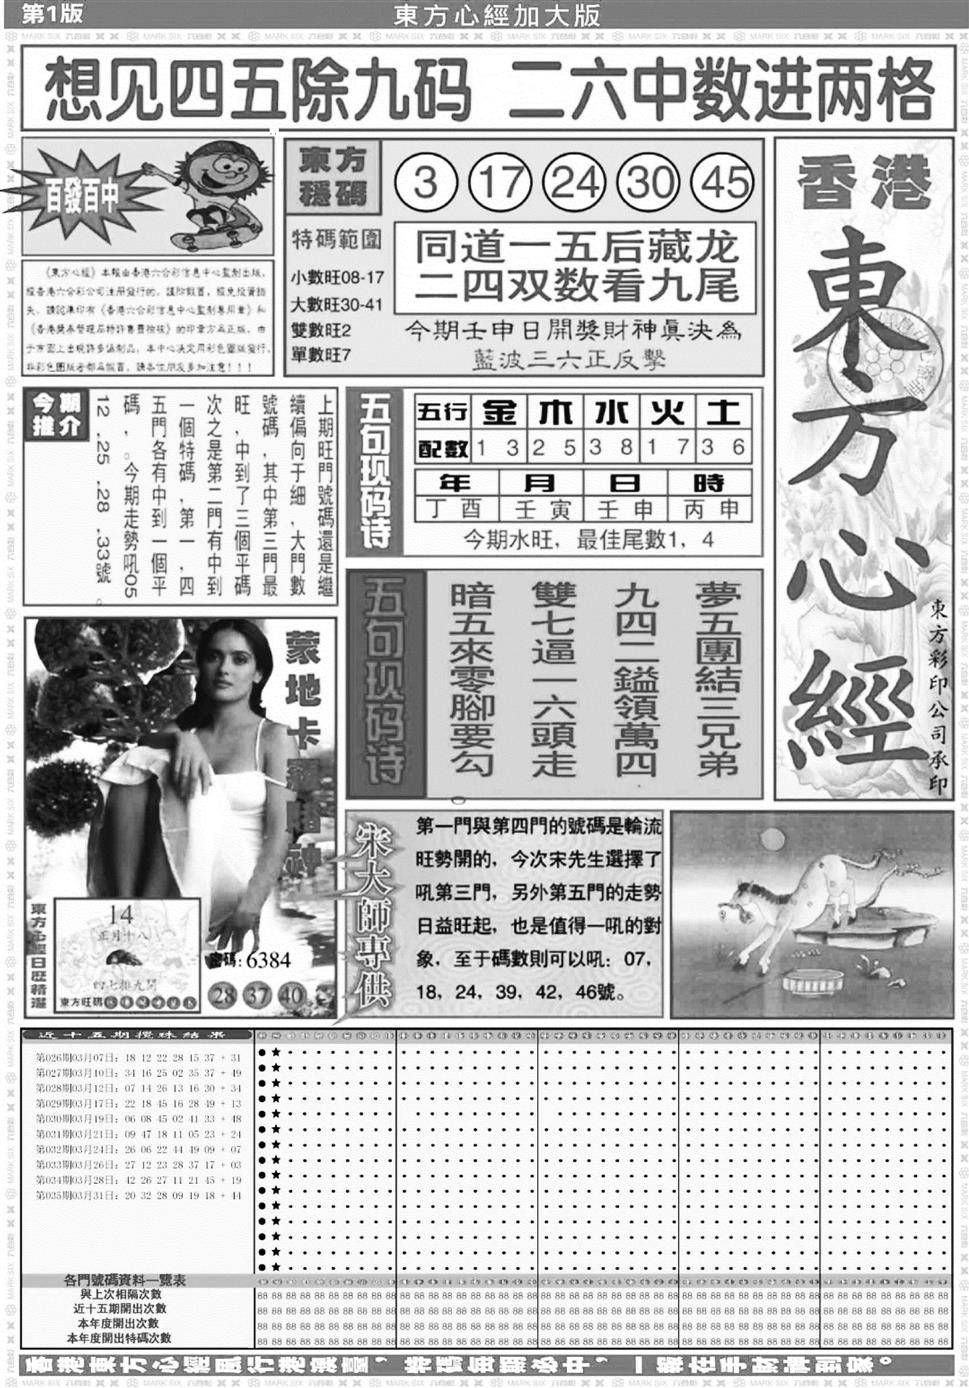 第1版
東方心經加大版
想见四五除九码 二六中数进两格
百發百中
東方
穩碼
3 17 24 30 45
特碼範圍
小數旺08-17
大數旺30-41
雙數旺2
單數旺7
同道一五后藏龙
二四双数看九尾
今期壬申日開獎財神真決為
藍波三六正反擊
香港
東方心經
東方彩印公司承印
《東方心經》本報由香港六合彩信息中心監制出版，
經香港六合彩公司注册發行的，
今期
推介
上期旺門號碼還是繼
續偏向于細，大門數
號碼，其中第三門最
旺，中到了三個平碼
次之是第二門有中到
一個特碼，第一，四
五門各有中到一個平
碼，。今期走勢吼05
12.25.28.33號。
五句现码诗
五行 金 木 水 火 土
配數 1 3 2 5 3 8 1 7 3 6
年 月 日 時
丁酉 壬寅 壬申 丙申
今期水旺，最佳尾數1，4
五句现码诗
夢五團結三兄弟
九四二鎰領萬四
雙七逼一六頭走
暗五來零腳要勾
蒙地卡羅賭神
14
正月十八
四七排九開
東方旺碼
東方心經日歷精選
密碼:6384
28 37 40
宋大師專供
第一門與第四門的號碼是輪流
旺勢開的，今次宋先生選擇了
吼第三門，另外第五門的走勢
日益旺起，也是值得一吼的對
象，至于碼數則可以吼：07，
18，24，39，42，46號。
近十五期攪珠結果
第026期03月07日：18 12 22 28 15 37 + 31
第027期03月10日：34 16 25 02 35 37 + 49
第028期03月12日：07 14 26 13 16 30 + 34
第029期03月17日：22 18 45 16 28 49 + 13
第030期03月19日：06 08 45 02 41 33 + 48
第031期03月21日：09 47 18 11 05 23 + 24
第032期03月24日：26 06 22 44 49 09 + 07
第033期03月26日：27 12 23 28 37 17 + 03
第034期03月28日：42 26 27 11 21 45 + 19
第035期03月31日：20 32 28 09 19 18 + 44
各門號碼資料一覽表
與上次相隔次數
近十五期開出次數
本年度開出次數
本年度開出特碼次數
香港東方心經風行港澳臺，特碼每期必中，一報在手財神到家。